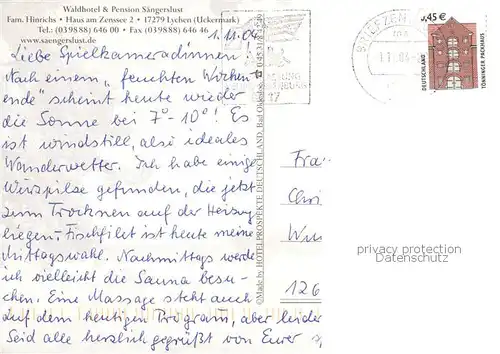 Waldhotel & Pension Sängerslust
Fam. Hinrichs • Haus am Zenssee 2 • 17279 Lychen (Uckermark)
Tel.: (039888) 646 00 • Fax (039888) 646 46
www.saengerslust.de
1.11.04
Liebe Spielkameradinnen!
Nach einem „feuchten Wochen
ende“ scheint heute wieder
die Sonne bei 7°-10°! Es
ist windstill, also ideales
Wanderwetter. Ich habe einige
Pilze gefunden, die jetzt
zum Trocknen auf der Heizung
liegen. Fischfilet ist heute meine
Mittagswahl. Nachmittags werde
ich vielleicht die Sauna besu-
chen. Eine Massage steht auch
auf dem heutigen Program, aber leider
Seid alle herzlich gegrüßt von Eurer
©Made by HOTELPROSPEKTE DEUTSCHLAND, Bad Oldesloe
BRIEFZEN
0,45 €
DEUTSCHLAND
TÖNNINGER PACKHAUS
Fra
Chri
126
privacy protection
Datenschutz